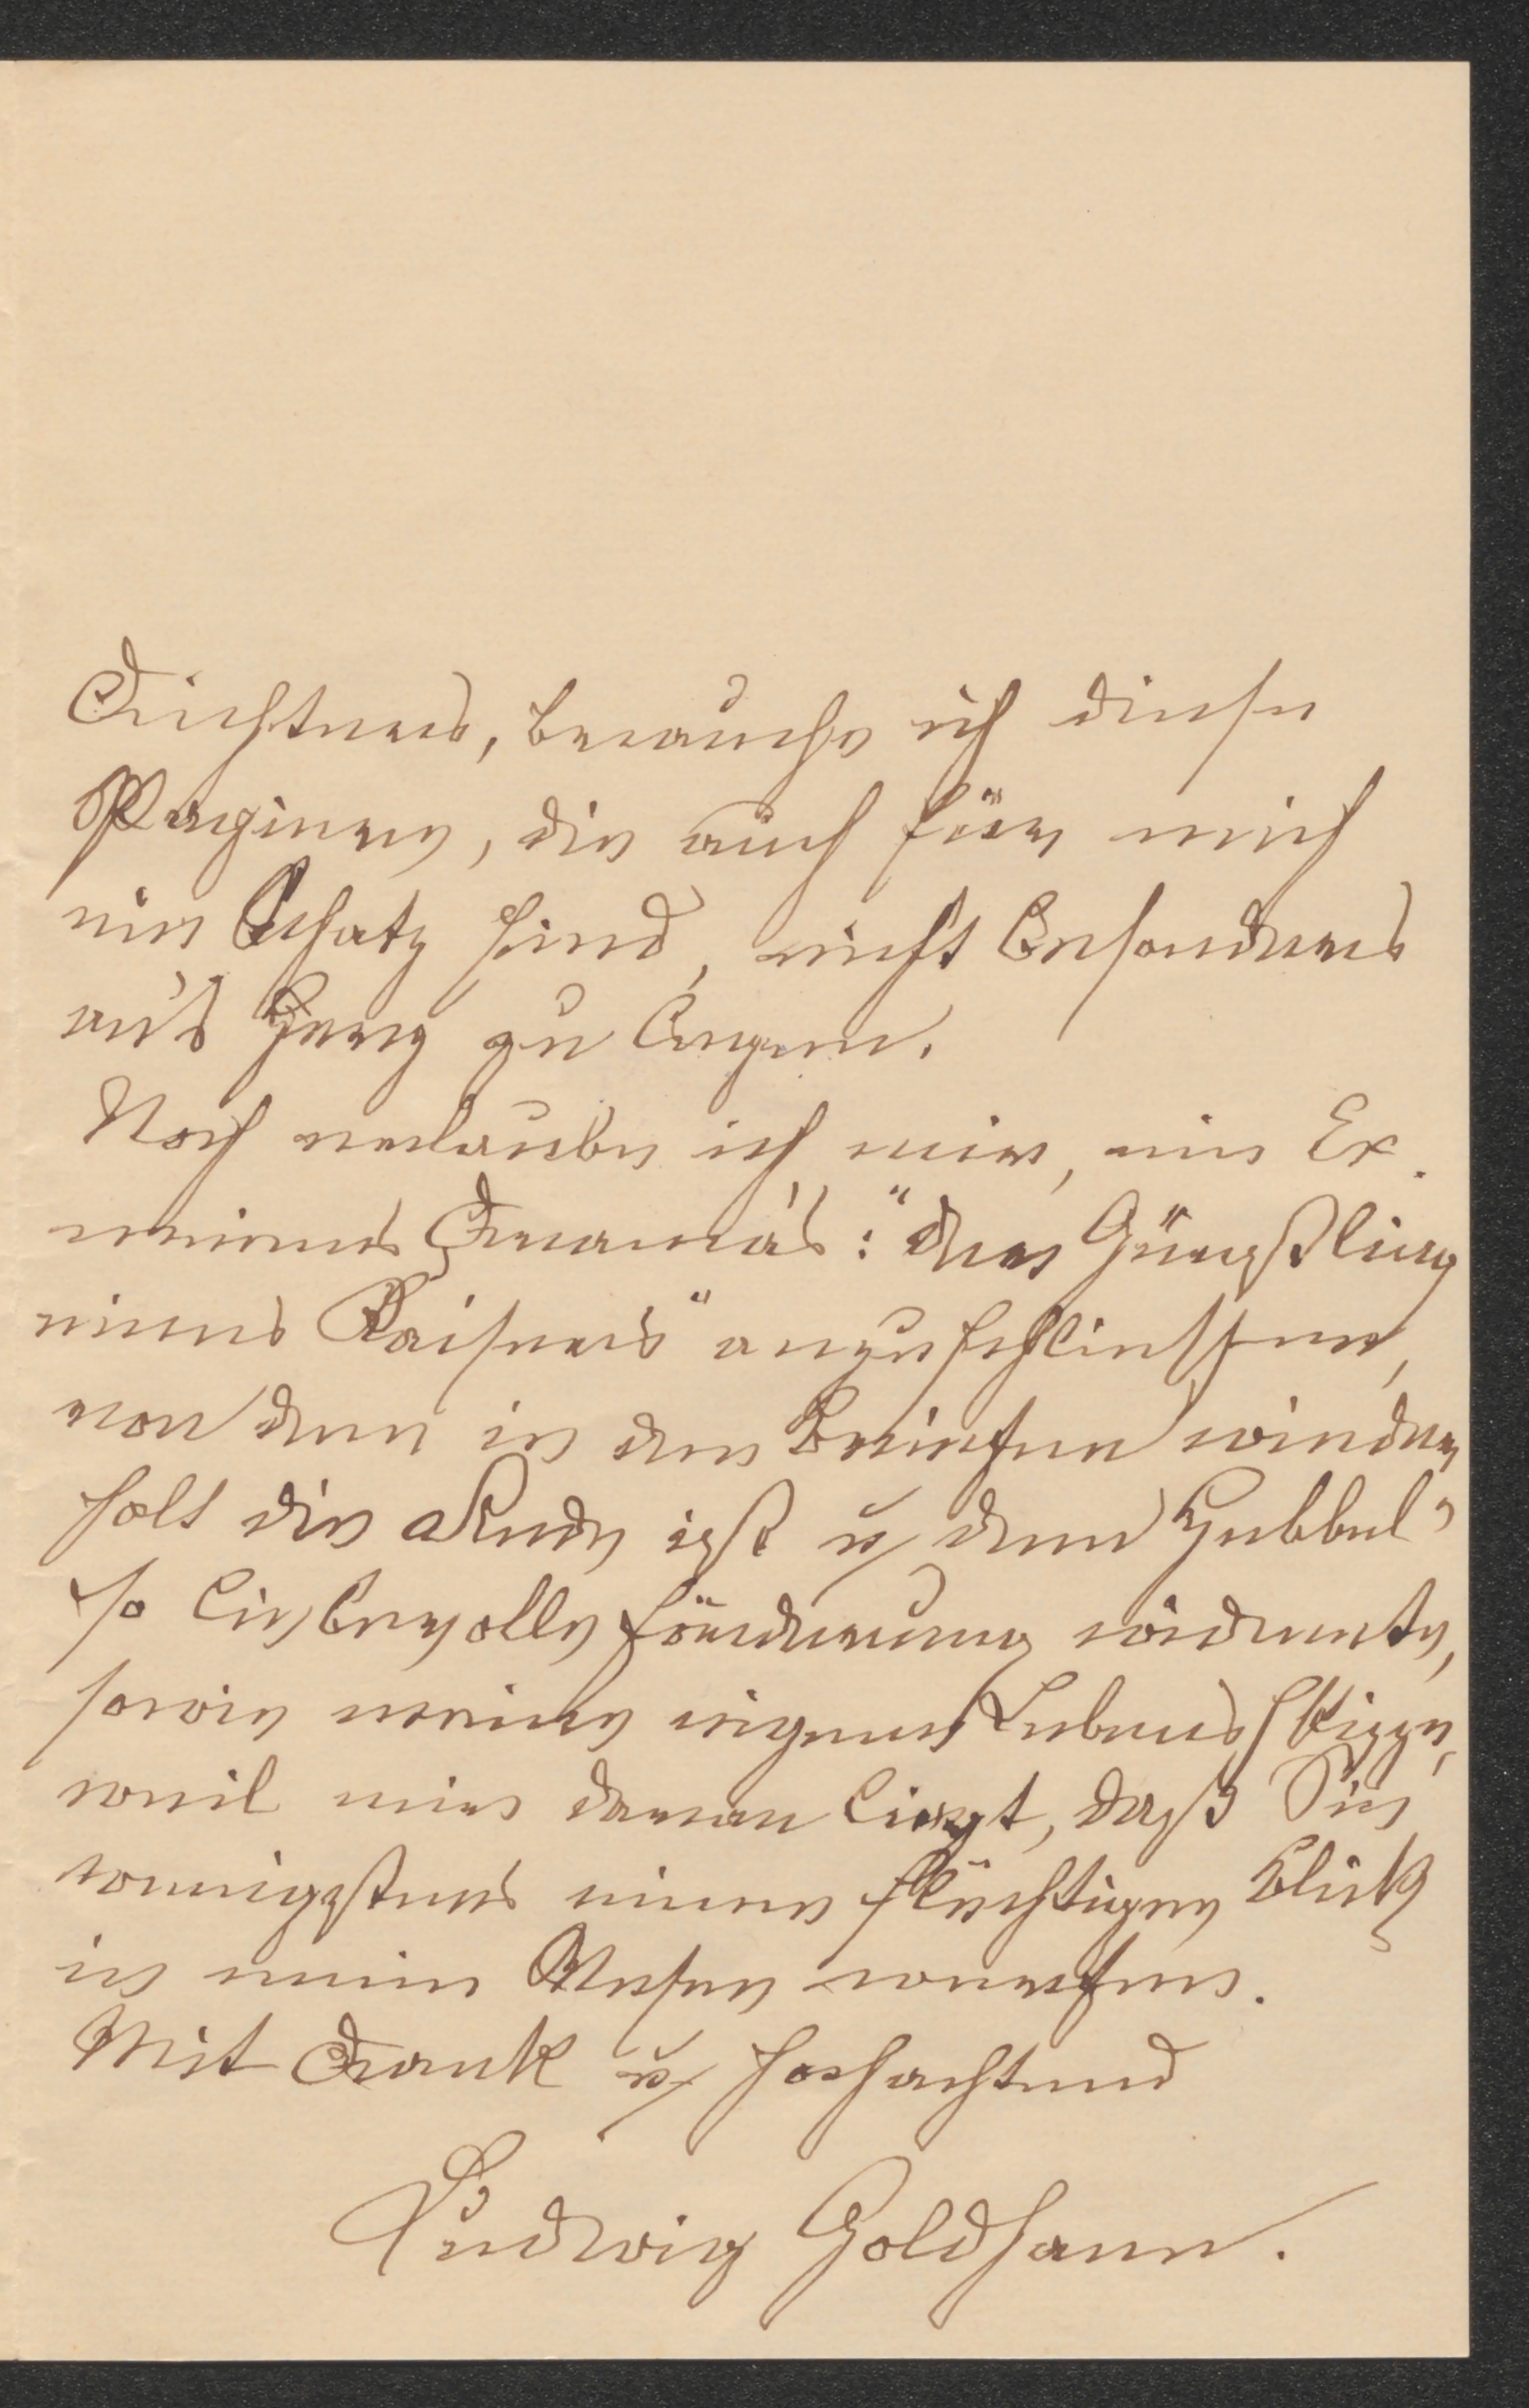 Dichters, brauche ich diese
Paginen, die auch für mich
ein Schatz sind, nicht besonders
an's Herz zu legen.
Noch erlaube ich mir, ein Ex.
meines Drama's: "Der Günstling
eines Kaisers" anzuschliessen,
von dem in den Briefen wieder
holt die Rede ist u dem Hebbel
so liebevolle Förderung widmete,
sowie meine eigene Lebensskizze,
weil mir daran liegt, daß Sie
wenigstens einen flüchtigen Blick
in mein Wesen werfen.
Mit Dank u hochachtend
Ludwig Goldhann.